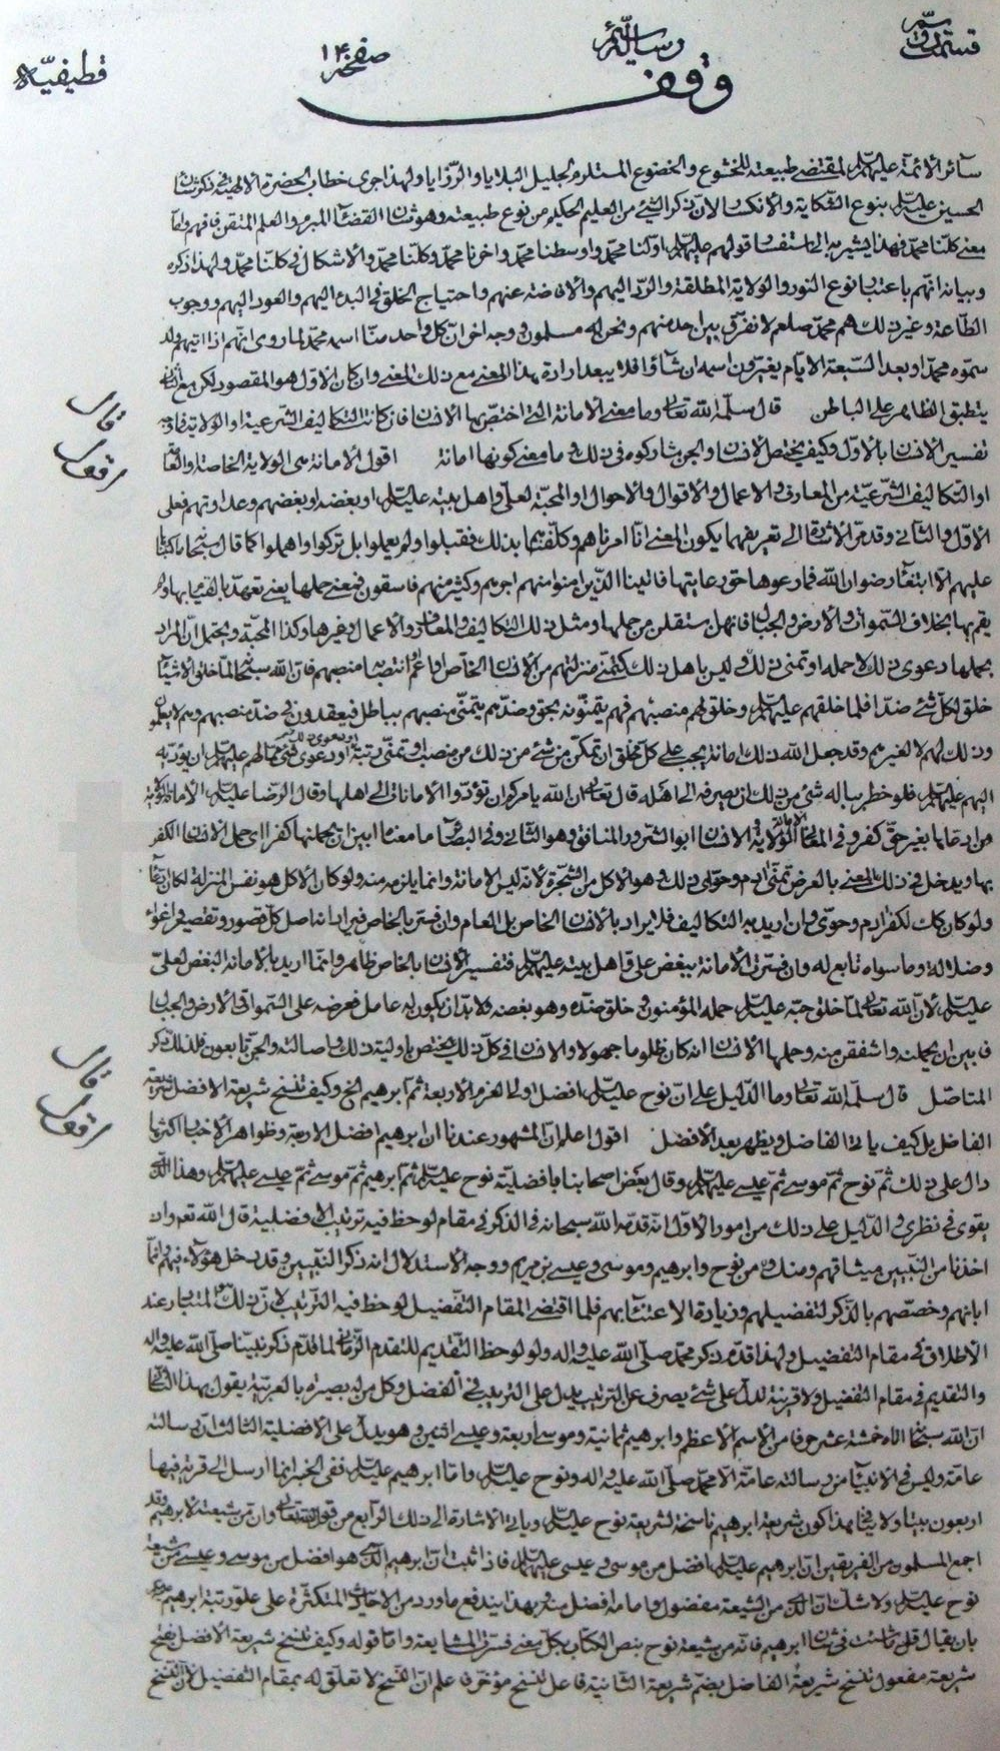 قسمت دوم رسالة صفحه ۱۴۰ قطيفيّه
وقف
سائر الأئمة عليهم السلم لمقتضى طبيعته للخشوع والخضوع المستلزم لجليل البلايا والرزايا ولهذا جرى خطاب الحضرة الالهية في ذكر شان
الحسين عليه السلم بنوع الشكاية والانكسار لان ذكر الشيء من العليم الحكيم من نوع طبيعته وهو شان القضاء المبرم والعلم المتقن فافهم واما
معنى كلنا محمد فهذا يشير به الى ما استفسر قولهم عليهم السلم اولنا محمد واوسطنا محمد واخرنا محمد وكلنا محمد والاشكال في كلنا محمد ولهذا ذكره
وبيانه انهم باعتبار نوع النور والولاية المطلقة والرد اليهم والافاضة عنهم واحتياج الخلق في البدء اليهم والعود اليهم ووجوب
الطاعة وغير ذلك هم محمد صلعم لا نفرق بين احد منهم ونحن له مسلمون وجه اخر ان كل واحد منا اسمه محمد لما روى انهم اذا اتيهم ولد
سموه محمدا وبعد السبعة الايام يغيرون اسمه ان شاؤا فلا يبعد ارادة هذا المعنى مع ذلك المعنى وان كان الاول هو المقصود لكن مع الثاني
ينطبق الظاهر على الباطن قال سلمه الله تعالى وما معنى الامانة التي اختص بها الانسان فان كانت التكاليف الشرعية او الولاية فما وجه
تفسير الانسان بالاول وكيف يختص الانسان والجن شاركوه في ذلك وما معنى كونها امانة اقول الامانة هي الولاية الخاصة والعامة
او التكاليف الشرعية من المعارف والاعمال والاقوال والاحوال او المحبة لعلي واهل بيته عليهم السلم او بغضه وبغضهم وعداوتهم فعلى
الاول والثاني وقد مر الاشارة الى تعريفهما يكون المعنى انا امرناهم وكلفناهم بذلك فقبلوا ولم يعملوا بل تركوا واهملوا كما قال سبحانه ما كتبناها
عليهم الا ابتغاء رضوان الله فما رعوها حق رعايتها فاتينا الذين امنوا منهم اجرهم وكثير منهم فاسقون فمعنى حملها يعنى تعهد بالقيام بها ولم
يقم بها بخلاف السموات والارض والجبال فانهن استقلن من حملها ومثل ذلك التكاليف والمعارف والاعمال وغيرها وكذا المحبة ويحتمل ان المراد
بحملها دعوى ذلك لاحمله او تمنى ذلك وليس باهل ذلك كتمنى منزلتهم من الانسان الخاص او انتصابه منصبهم فان الله سبحانه لما خلق الاشياء
خلق لكل شيء ضدا فلما خلقهم عليهم السلم وخلق لهم منصبهم فهم يتمنونه بحق وضدهم يتمنى منصبهم بباطل فيعقدون في ضد منصبهم وهم لا يعلمون
وذلك لهم لا لغيرهم وقد جعل الله ذلك امانة يجب على كل مخلوق ان تمكن من شيء من ذلك من منصب او تمنى رتبة او دعوى فى مقامهم عليهم السلم ان يؤديه
اليهم عليهم السلم فلو خطر بباله شيء من ذلك ان يصرفه الى اهله قال تعالى ان الله يأمركم ان تؤدوا الامانات الى اهلها وقال الرضا عليه السلم الامانة الولاية
من ادعاها بغير حق كفر وفي المعاني الامانة الولاية والانسان ابو الشرور المنافق وهو الثاني وفي البصائر ما معناه ابين ان يحملنها كفرا اي حمل الانسان الكفر
بها ويدخل في ذلك المعنى بالعرض تمنى ادم وحوا في ذلك وهو الاكل من الشجرة لانه ليس الامانة وانما يلزمه منه ولو كان الاكل هو نفس المنزلة لكان
ولو كان كك لكفر ادم وحوى وان اريد به التكاليف فلا يراد بالانسان الخاص بل العام وان فسر بالخاص فيراد انه اصل كل قصور وتقصير في اغواء
وضلالة وما سواه تابع له وان فسرت الامانة ببغض علي واهل بيته عليهم السلم فتفسير الانسان بالخاص ظاهر وانما اريد بالامانة البغض لعلي
عليه السلم لان الله تعالى لما خلق حبه عليه السلم حمله المؤمنون وخلق ضده وهو بغضه فلا بد ان يكون له عامل فعرضه على السموات والارض والجبال
فابين ان يحملنه واشفقن منه وحملها الانسان انه كان ظلوما جهولا والانسان في كل ذلك يختص باولية ذلك واصالته والجن تابعون فلذلك ذكر
المتاصل قال سلمه الله تعالى وما الدليل على ان نوح عليه السلم افضل اولي العزم الاربعة ثم ابرهيم الخ وكيف تنسخ شريعة الافضل شريعة
الفاضل بل كيف ياتى الفاضل ويظهر بعد الافضل اقول اعلم ان المشهور عندنا ان ابرهيم افضل الاربعة وظواهر الاخبار اكثرها
دال على ذلك ثم نوح ثم موسى ثم عيسى عليهم السلم وقال بعض اصحابنا بافضلية نوح عليه السلم ثم ابرهيم ثم موسى ثم عيسى عليهم السلم وهذا الذي
يقوى في نظرى والدليل على ذلك من امور الاول انه قدمه الله سبحانه في الذكر في مقام لوحظ فيه ترتيب الافضلية قال الله تعالى واذ
اخذنا من النبيين ميثاقهم ومنك ومن نوح وابرهيم وموسى وعيسى بن مريم ووجه الاستدلال انه ذكر النبيين وقد دخل هؤلاء فيهم وانما
ابانهم وخصصهم بالذكر لتفضيلهم وزيادة الاعتناء بهم فلما اقتضى المقام التفضيل لوحظ فيه الترتيب لان ذلك هو المتبادر عند
الاطلاق في مقام التفضيل ولهذا قدم ذكر محمد صلى الله عليه واله ولو لوحظ التقديم للتقدم الزماني لما قدم ذكر نبينا صلى الله عليه واله
والتقديم في مقام التفضيل ولا قرينة تدل على شيء يصرف عن الترتيب يدل على الترتيب في الفضل وكل من له بصيرة بالعربية يقول بهذا الثاني
ان الله سبحانه اتاه خمسة عشر حرفا من الاسم الاعظم وابرهيم ثمانية وموسى اربعة وعيسى اثنين وهو يدل على الافضلية الثالث ان رسالته
عامة وليس في الانبياء من رسالته عامة الا محمد صلى الله عليه واله ونوح عليه السلم واما ابرهيم عليه السلم ففي الخبر انما ارسل الى قرية فيها
اربعون بيتا ولا ينافي هذا كون شريعة ابرهيم ناسخة لشريعة نوح عليه السلم وياتى الاشارة الى ذلك الرابع من قوله تعالى وان من شيعته لابرهيم وقد
اجمع المسلمون من الفريقين ان ابرهيم عليه السلم افضل من موسى وعيسى عليهما السلم فاذا ثبت ان ابرهيم الذي هو افضل من موسى وعيسى من شيعة
نوح عليه السلم ولا شك ان الذي من الشيعة مفضول وامامه افضل منه وبهذا يندفع ما ورد من الاحاديث المتكثرة على علو رتبة ابرهيم
بان يقال قل ما شئت في شان ابرهيم فانه من شيعة نوح بنص الكتاب بكل معنى فسرت المشايعة واما قوله وكيف تنسخ شريعة الافضل بفتح
شريعة مفعول تنسخ شريعة الفاضل بضم شريعة الثانية فاعل تنسخ مؤخر فاعلم ان النسخ لا تعلق له بمقام التفضيل لان النسخ